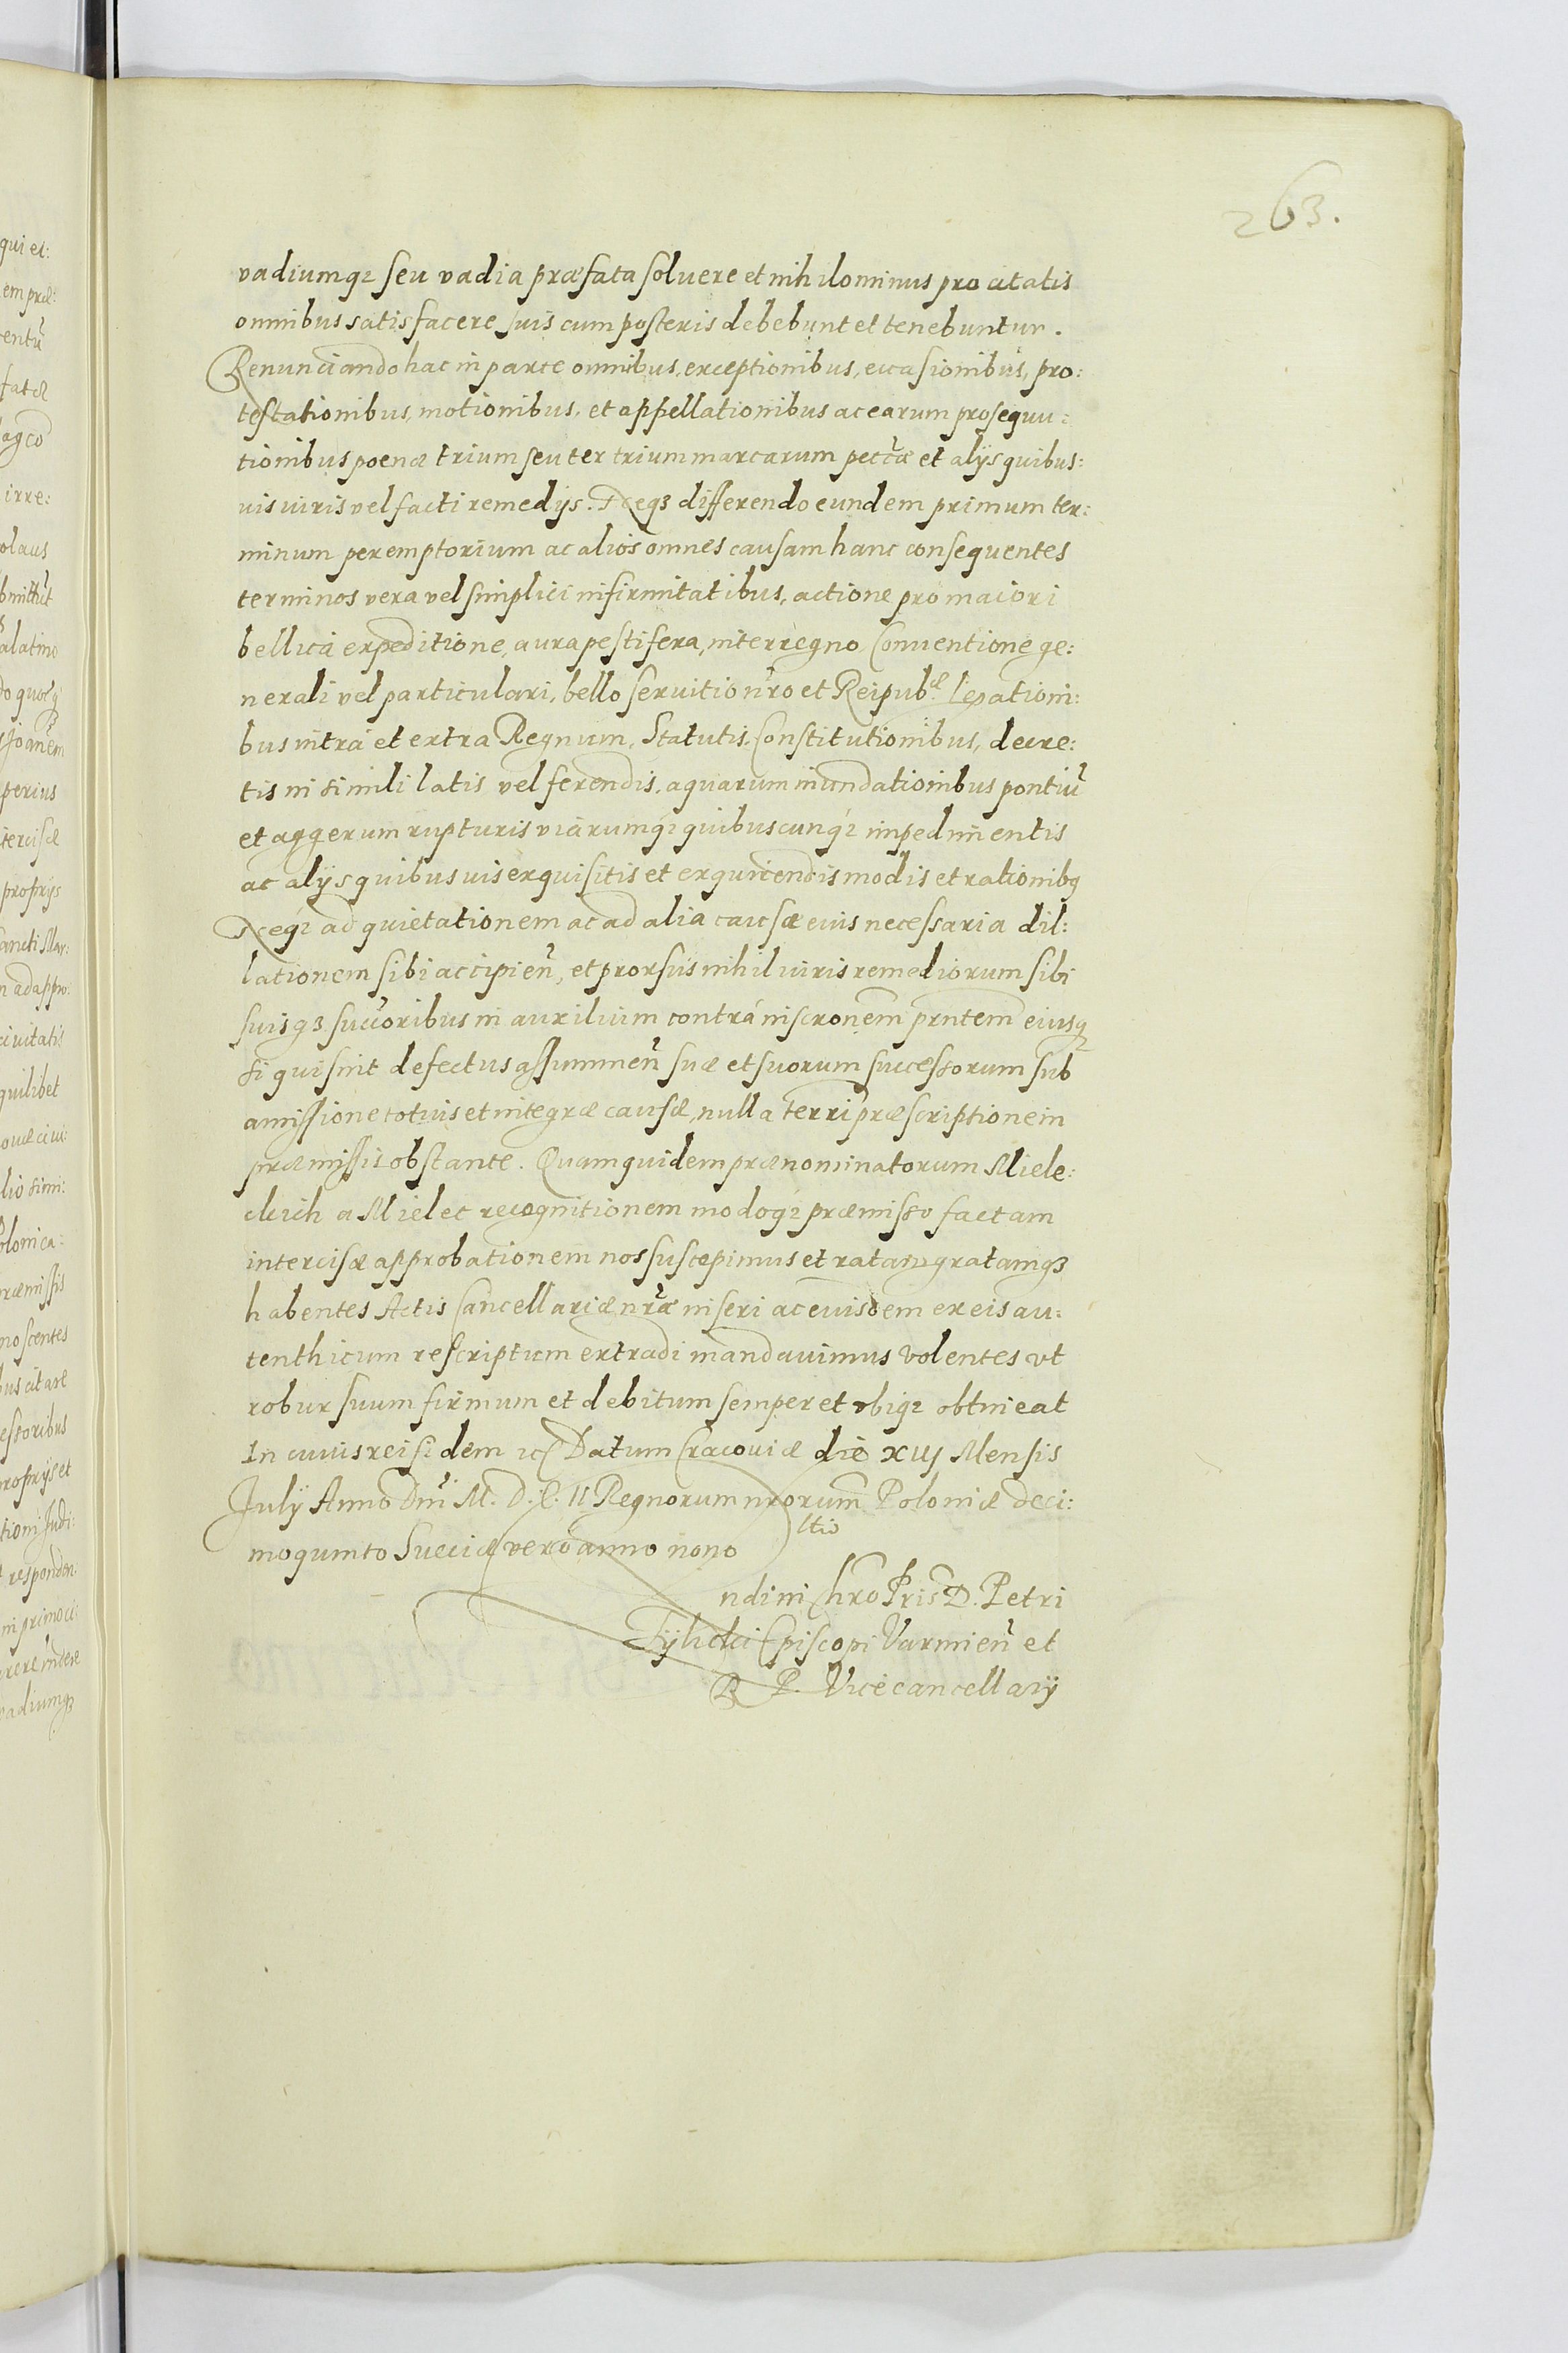 263.
vadiumq3 seu vadia præfata soluere et nihilominus pro citatis
omnibus satisfacere suis cum posteris debebunt et tenebuntur.
Renunciando hac in parte omnibus, exceptionibus, euasionibus, pro:
testationibus, motionibus, et appellationibus ac earum prosequu:
tionibus poenæ trium seu ter trium marcarum pecc̃æ et alÿs quibus:
uis iuris vel facti remedÿs. Neq3 differendo eundem primum ter:
minum peremptorium ac alios omnes causam hanc consequentes
terminos vera vel simplici infirmitatibus, actione pro maiori
bellica expeditione, aura pestifera, interregno, Conuentione ge:
nerali vel particulari, bello seruitio nr̃o et Reipub.æ legationi:
bus intra et extra Regnum, Statutis, Constitutionibus, decre:
tis in simili latis vel ferendis, aquarum inundationibus pontiũ
et aggerum rupturis viarumq3 quibuscunq3 impedimentis
ac alÿs quibusuis exquisitis et exquirendis modis et rationibq
Neq3 ad quietationem ac ad alia causæ euis necessaria dil:
lationem sibi accipieñ, et prorsus nihil iuris remediorum sibi
suisq3 succ̃oribus in auxilium contra inscronem̃ prntem̃ eiusq3
si qui sint defectus assummeñ suæ et suorum successorum sub
amissione totius et integræ causæ, nulla terrr̃i præscriptione in
præmissis obstante. Quamquidem prænominatorum Miele:
ckich a Mielec recognitionem modoq3 præmisso factam
intercisæ approbationem nos suscepimus et ratam gratamq3
habentes Actis Cancellariæ nr̃æ inseri ac euisdem ex eis au:
tenthicum rescriptum extradi mandauimus volentes vt
robur suum firmum et debitum semper et vbiq3 obtineat
In cuius rei fidem etc Datum Cracouiæ die xiij Mensis
Julÿ Anno Dñi M. D. C. II Regnorum nrorum̃ Poloniæ deci:
moquinto Sueciæ vero anno nono
ltio
ndi in Chro Pris D. Petri
Tÿlicki Episcopi Varmieñ et
R P. Vicecancellarÿ